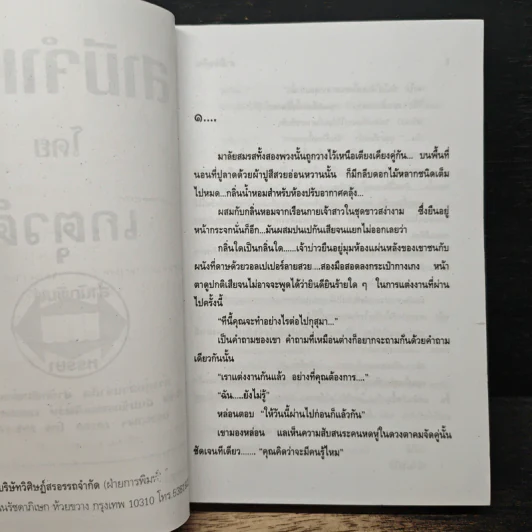 สามีจำ
โดย
เกตุวดี
บริษัทวิศิษฎ์สรอรรถจำกัด (ฝ่ายการพิมพ์)
นรัชดาภิเษก ห้วยขวาง กรุงเทพ 10310 โทร.
๑....
มาลัยสมรสทั้งสองพวงนั้นถูกวางไว้เหนือเตียงเคียงคู่กัน... บนพื้นที่
นอนที่ปูลาดด้วยผ้าปูสีสวยอ่อนหวานนั้น ก็มีกลีบดอกไม้หลากชนิดเต็ม
ไปหมด...กลิ่นน้ำหอมสำหรับห้องปรับอากาศคลุ้ง...
ผสมกับกลิ่นหอมจากเรือนกายเจ้าสาวในชุดขาวสง่างาม ซึ่งยืนอยู่
หน้ากระจกนั่นก็อีก...มันผสมปนเปกันเสียจนแยกไม่ออกเลยว่า
กลิ่นใดเป็นกลิ่นใด......เจ้าบ่าวยืนอยู่มุมห้องแผ่นหลังของเขาชนกับ
ผนังที่ดาษด้วยวอลเปเปอร์ลายสวย ...สองมือสอดลงกระเป๋ากางเกง หน้า
ตาดูปกติเสียจนไม่อาจจะพูดได้ว่ายินดียินร้ายใด ๆ ในการแต่งงานที่ผ่าน
ไปครั้งนี้
"ทีนี้คุณจะทำอย่างไรต่อไปกุสุมา..."
เป็นคำถามของเขา คำถามที่เหมือนต่างก็อยากจะถามกันด้วยคำถาม
เดียวกันนั้น
"เราแต่งงานกันแล้ว อย่างที่คุณต้องการ...."
"ฉัน.....ยังไม่รู้"
หล่อนตอบ "ให้วันนี้ผ่านไปก่อนก็แล้วกัน"
เขามองหล่อน แลเห็นความสับสนระคนหดหู่ในดวงตาคมจัดคู่นั้น
ชัดเจนทีเดียว....... "คุณคิดว่าจะมีคนรู้ไหม"